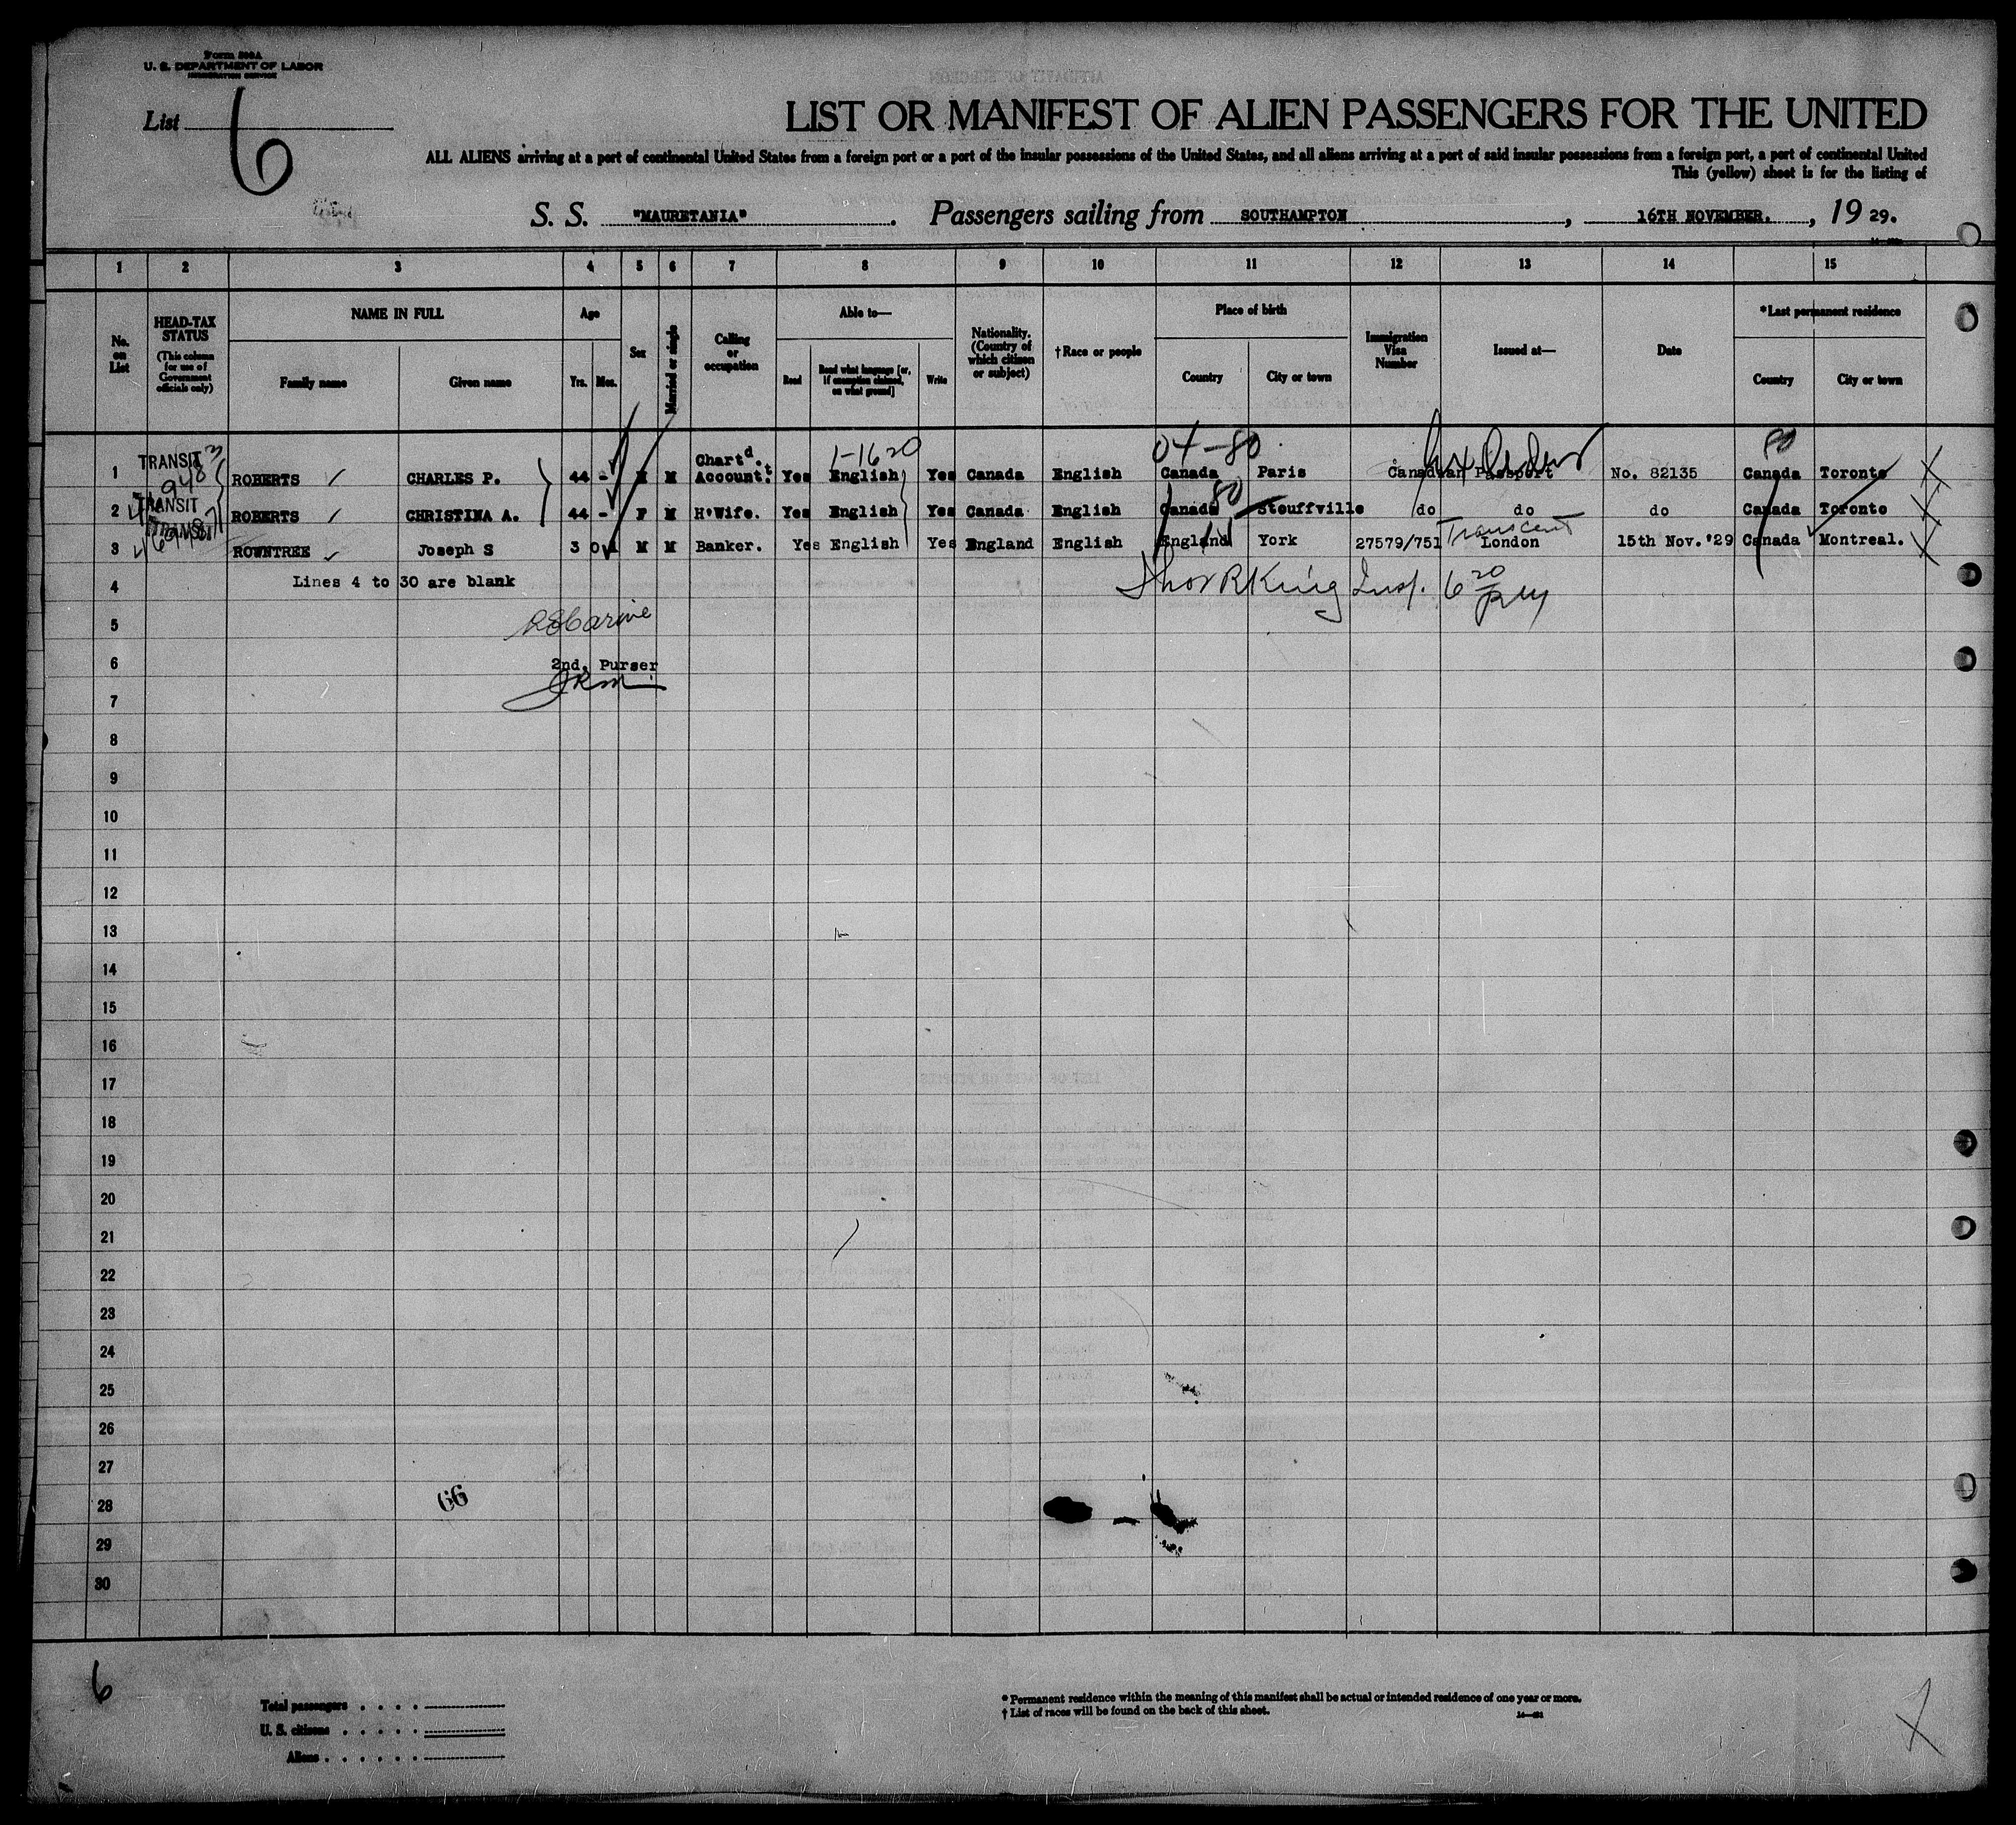 Form 500A
U. S. DEPARTMENT OF LABOR
IMMIGRATION SERVICE
List 6
LIST OR MANIFEST OF ALIEN PASSENGERS FOR THE UNITED
ALL ALIENS arriving at a port of continental United States from a foreign port or a port of the insular possessions of the United States, and all aliens arriving at a port of said insular possessions from a foreign port, a port of continental United
This (yellow) sheet is for the listing of
S. S. "MAURETANIA". Passengers sailing from SOUTHAMPTON, 16TH NOVEMBER., 19 29.
1 2 3 4 5 6 7 8 9 10 11 12 13 14 15
No. on List
HEAD-TAX STATUS (This column for use of Government officials only)
NAME IN FULL
Family name Given name
Age
Yrs. Mos.
Sex
Married or single
Calling or occupation
Able to—
Read Read what language [or, if exemption claimed, on what ground] Write
Nationality. (Country of which citizen or subject)
†Race or people
Place of birth
Country City or town
Immigration Visa Number
Issued at—
Date
*Last permanent residence
Country City or town
1-1620 04-80 80
1 TRANSIT ROBERTS CHARLES P. 44 - M M Chartd. Accountt. Yes English Yes Canada English Canada Paris Canadian Passport No. 82135 Canada Toronto
80
2 TRANSIT ROBERTS CHRISTINA A. 44 - F M H'Wife. Yes English Yes Canada English Canada Stouffville do do do Canada Toronto
3 TRANSIT ROWNTREE Joseph S 3 0 M M Banker. Yes English Yes England English England York 27579/751 London 15th Nov. '29 Canada Montreal.
4 Lines 4 to 30 are blank
Thos R King Insp. 6 20 PM
5
6 2nd. Purser
7
8
9
10
11
12
13
14
15
16
17
18
19
20
21
22
23
24
25
26
27
28 66
29
30
6
Total passengers
U. S. citizens
Aliens
* Permanent residence within the meaning of this manifest shall be actual or intended residence of one year or more.
† List of races will be found on the back of this sheet.